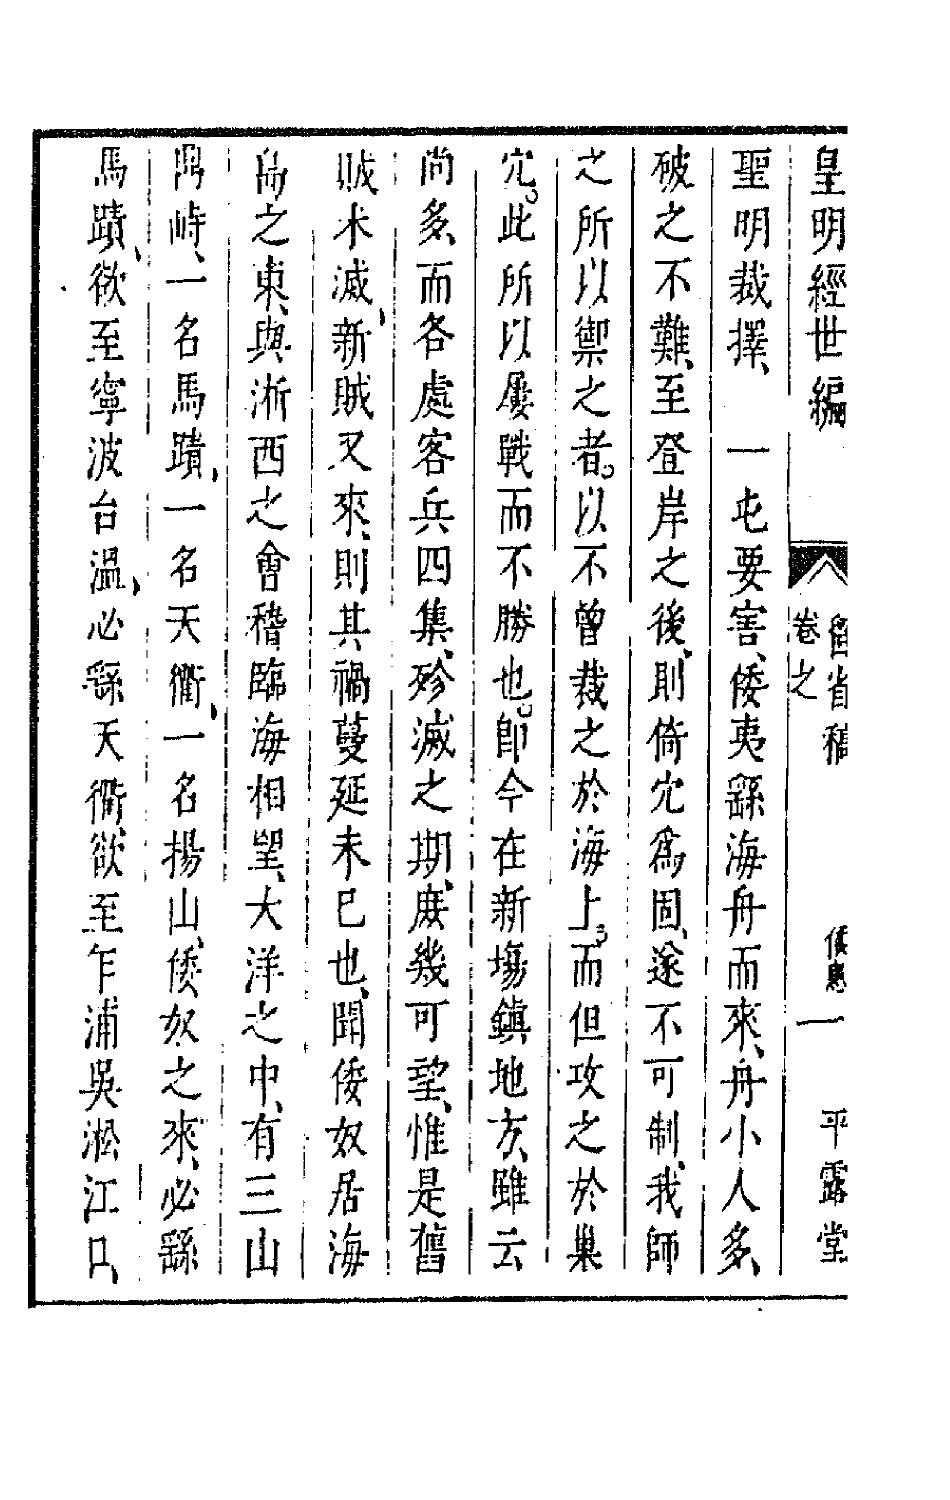 皇明經世編
留省稿
卷之
倭患
一
平露堂
聖明裁擇、　一屯要害、倭夷繇海舟而來、舟小人多、
破之不難、至登岸之後、則倚穴爲固、遂不可制、我師
之所以禦之者。以不曾裁之於海上。而但攻之於巢
穴。此所以屢戰而不勝也。卽今在新塲鎮地方、雖云
尚多、而各處客兵四集、殄滅之期、庶幾可望、惟是舊
賊未滅、新賊又來、則其禍蔓延未已也、聞倭奴居海
島之東、與淅西之會稽臨海相望、大洋之中、有三山
鼎峙、一名馬蹟、一名天衢、一名揚山、倭奴之來、必繇
馬蹟、欲至寧波台溫、必繇天衢、欲至乍浦吳淞江口、